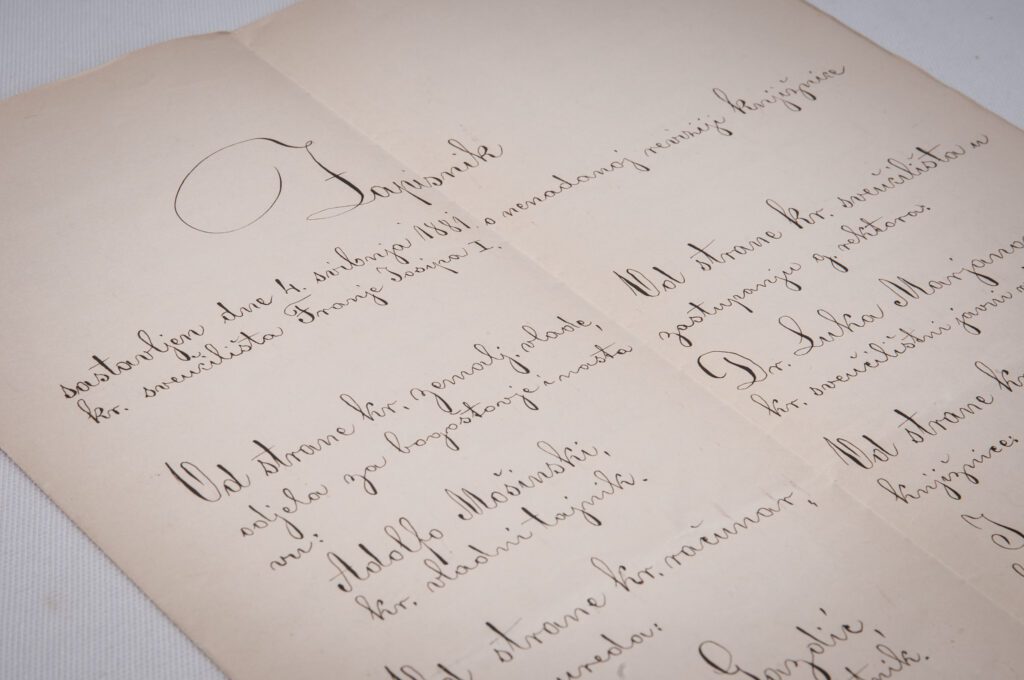 Zapisnik
sastavljen dne 4. svibnja 1881. o nenadanoj reviziji knjižnice
kr. sveučilišta Franje Josipa I.
Od strane kr. zemalj. vlade,
odjela za bogoštovje i nasta
vu:
Adolfo Mošinski,
kr. vladni tajnik.
strane kr. računar,
ureda:
Gazdić,
Od strane kr. sveučilišta u
zastupanju g. rektora:
Dr. Luka Marjano
kr. sveučilištni javni
Od strane k
knjižnice: